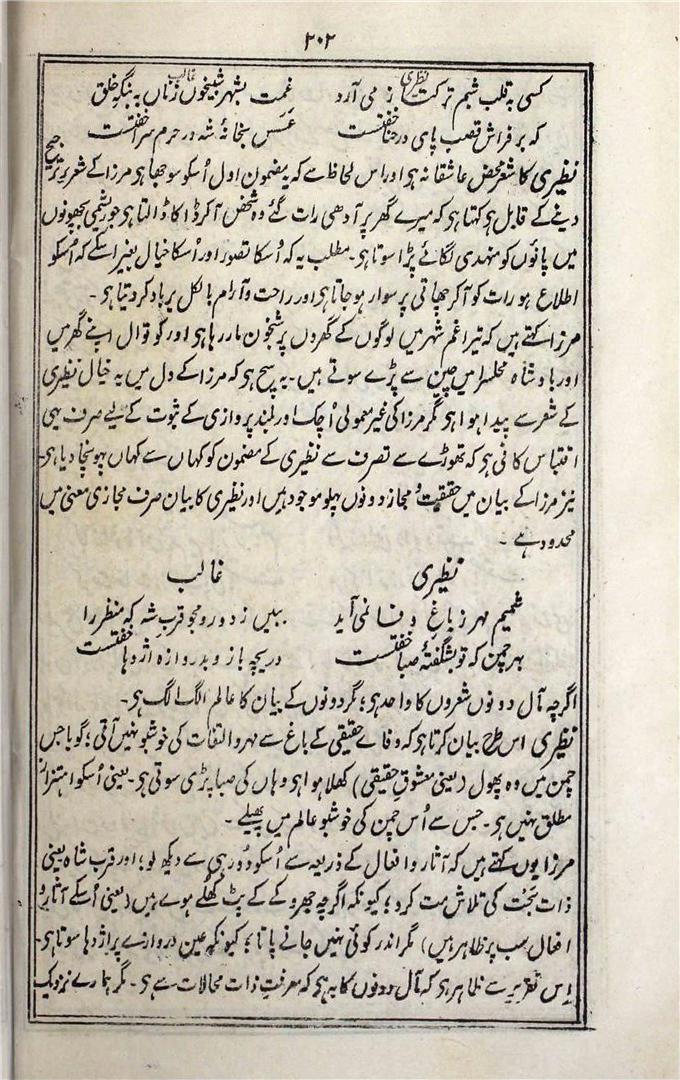 ۲۰۲
نظیری
غالب
کسی بہ قلب شبم ترکتاز می آرد
غمت بشہر شبیخوں زناں بہ بنگہ خلق
کہ بر فراش قصب پای در حنا خفتست
عسس بخانۂ و شہ در حرم سرا خفتست
نظیری کا شعر محض عاشقانہ ہو اور اس لحاظ سے کہ یہ مضمون اول اُسکو سوجھا ہو مرزا کے شعر پر ترجیح
دینے کے قابل ہو کہتا ہو کہ میرے گھر پر آدھی رات گئے وہ شخص آکر ڈاکا ڈالتا ہو جو ریشمی بچھونوں
میں پانوں کو منہدی لگائے پڑا سوتا ہو۔ مطلب یہ کہ اُسکا تصور اور اُسکا خیال بغیر اسکے کہ اُسکو
اطلاع ہو رات کو آکر چھاتی پر سوار ہو جاتا ہو اور راحت و آرام بالکل برباد کر دیتا ہے۔
مرزا کہتے ہیں کہ تیرا غم شہر میں لوگوں کے گھروں پر شبخون مار رہا ہو اور کوتوال اپنے گھر میں
اور بادشاہ محلسرا میں چین سے پڑے سوتے ہیں۔ یہ سچ ہو کہ مرزا کے دل میں یہ خیال نظیری
کے شعر سے پیدا ہوا ہو مگر مرزا کی غیر معمولی اُچک اور بلند پروازی کے ثبوت کے لیے صرف یہی
اقتباس کافی ہو کہ تھوڑے سے تصرف سے نظیری کے مضمون کو کہاں سے کہاں پہونچا دیا ہو۔
نیز مرزا کے بیان میں حقیقت و مجاز دونوں پہلو موجود ہیں اور نظیری کا بیان صرف مجازی معنی میں
محدود ہے۔
نظیری
غالب
شمیم مہر ز باغ وفا نمی آید
ببیں ز دور و مجو قرب شہ کہ منظر را
بہر چمن کہ تو بشگفتۂ صبا خفتست
دریچہ باز و بدروازہ اژدہا خفتست
اگرچہ مآل دونوں شعروں کا واحد ہو؛ مگر دونوں کے بیان کا عالم الگ الگ ہو۔
نظیری اس طرح بیان کرتا ہو کہ وفاے حقیقی کے باغ سے مہر و التفات کی خوشبو نہیں آتی؛ گویا جس
چمن میں وہ پھول (یعنی معشوقِ حقیقی) کھلا ہوا ہو وہاں کی صبا پڑی سوتی ہو۔ یعنی اُسکو اہتزاز
مطلق نہیں ہو۔ جس سے اُس چمن کی خوشبو عالم میں پھیلے۔
مرزا یوں کہتے ہیں کہ آثار و افعال کے ذریعہ سے اُسکو دُور ہی سے دیکھ لو؛ اور قرب شاہ یعنی
ذات بَحْت کی تلاش مت کرو؛ کیونکہ اگرچہ جھروکے کے پٹ کھلے ہوے ہیں (یعنی اُسکے آثار و
افعال سب پر ظاہر ہیں) مگر اندر کوئی نہیں جانے پاتا؛ کیونکہ عین دروازے پر اژدہا سوتا ہو۔
اِس تقریر سے ظاہر ہو کہ مآل دونوں کا یہ ہو کہ معرفتِ ذات محالات سے ہو۔ مگر ہمارے نزدیک